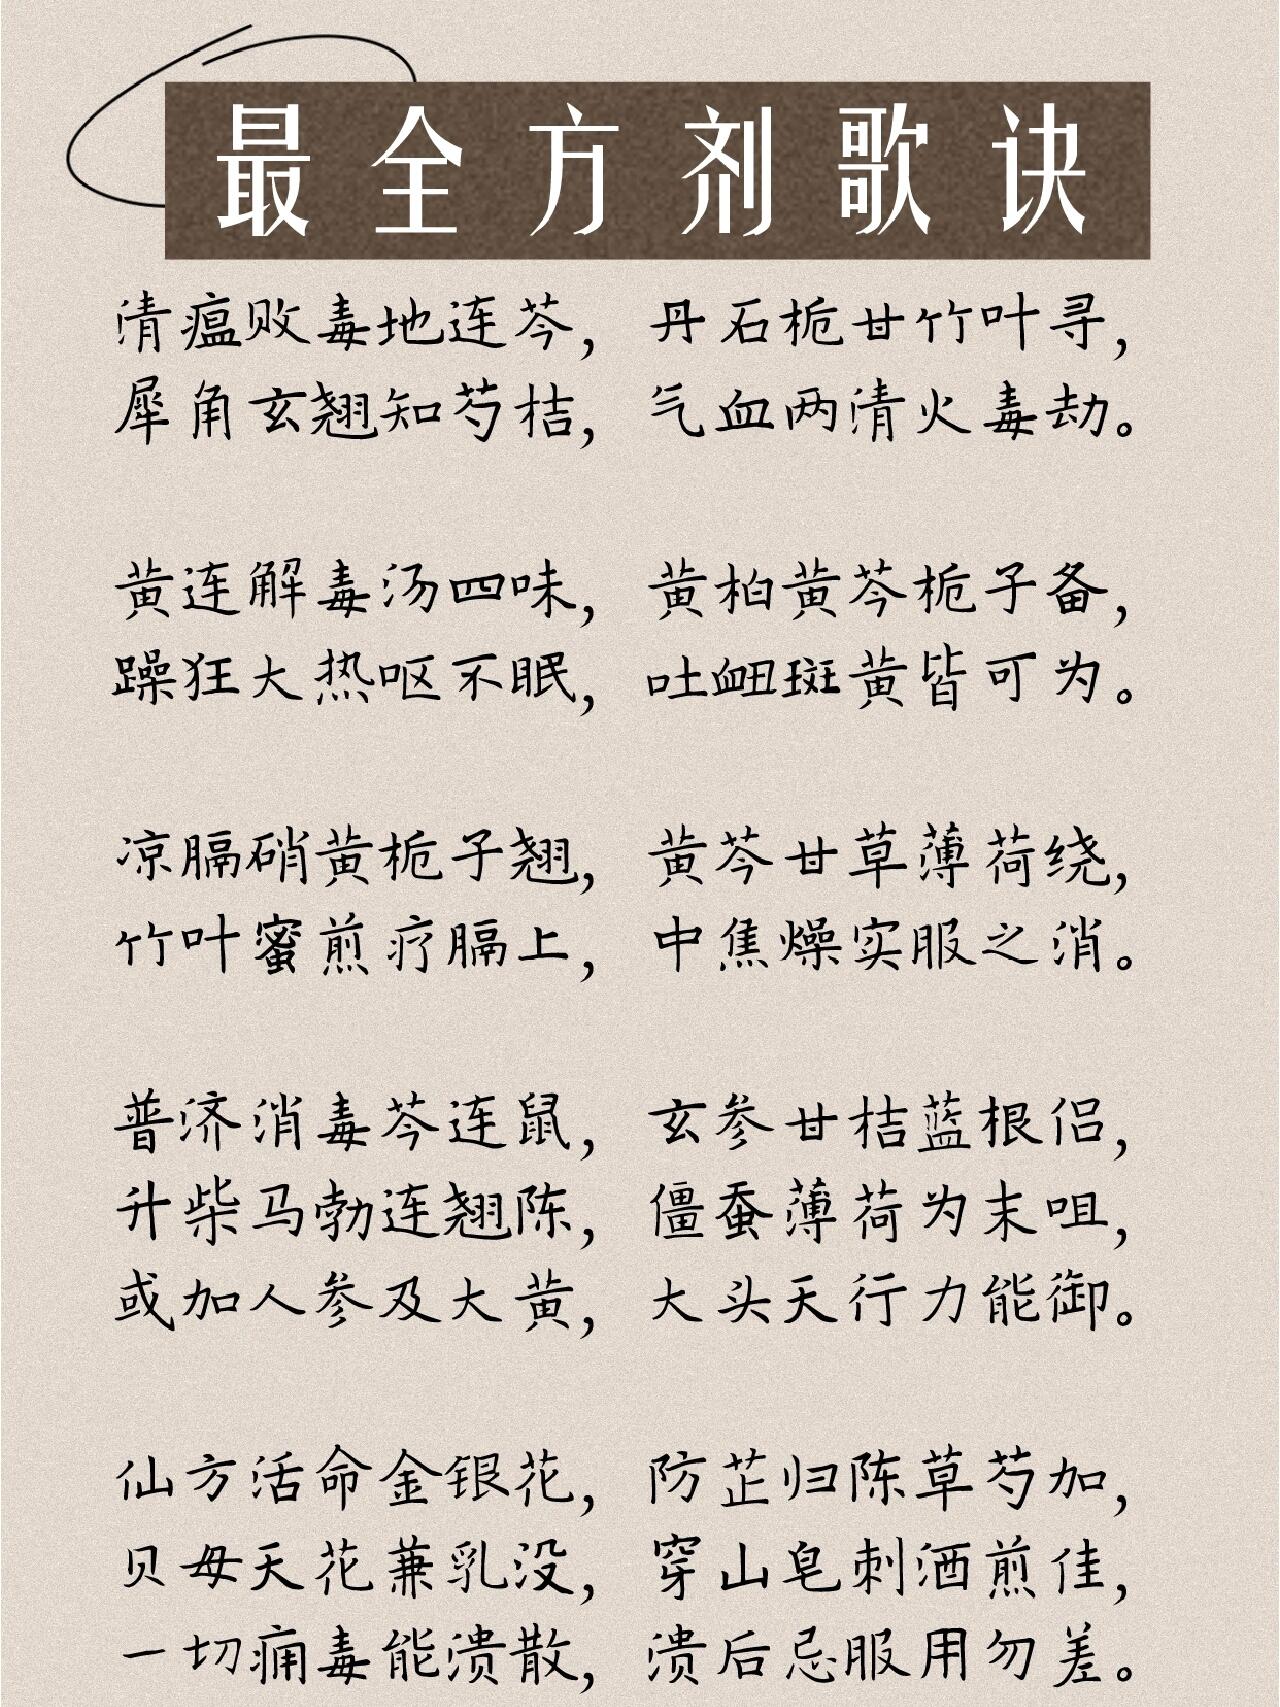 最全方剂歌诀
清瘟败毒地连芩，丹石栀甘竹叶寻，
犀角玄翘知芍桔，气血两清火毒劫。
黄连解毒汤四味，黄柏黄芩栀子备，
躁狂大热呕不眠，吐衄斑黄皆可为。
凉膈硝黄栀子翘，黄芩甘草薄荷绕，
竹叶蜜煎疗膈上，中焦燥实服之消。
普济消毒芩连鼠，玄参甘桔蓝根侣，
升柴马勃连翘陈，僵蚕薄荷为末咀，
或加人参及大黄，大头天行力能御。
仙方活命金银花，防芷归陈草芍加，
贝母天花兼乳没，穿山皂刺酒煎佳，
一切痈毒能溃散，溃后忌服用勿差。